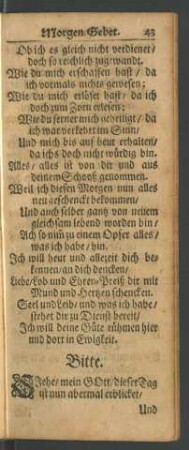 Morgen-Gebet. 43
Ob ich es gleich nicht verdienet/
doch so reichlich zugewandt.
Wie du mich erschaffen hast / da
ich vormals nichts gewesen;
Wie du mich erlöset hast / da ich
doch zum Zorn erlesen;
Wie du ferner mich geheiligt / da
ich war verkehrt im Sinn/
Und mich bis auf heut erhalten/
da ichs doch nicht würdig bin.
Alles / alles ist von dir und aus
deinem Schooß genommen.
Weil ich diesen Morgen nun alles
neu geschenckt bekommen/
Und auch selber gantz von neuem
gleichsam lebend worden bin/
Ach so nim zu einem Opfer alles/
was ich habe / hin.
Ich will heut und allezeit dich be-
kennen / an dich dencken/
Liebe / Lob und Ehren-Preiß dir mit
Mund und Hertzen schencken.
Seel und Leib / und was ich habe/
stehet dir zu Dienst bereit/
Ich will deine Güte rühmen hier
und dort in Ewigkeit.
Bitte.
Siehe / mein GOtt / dieser Tag
ist nun abermal erblicket/
Und